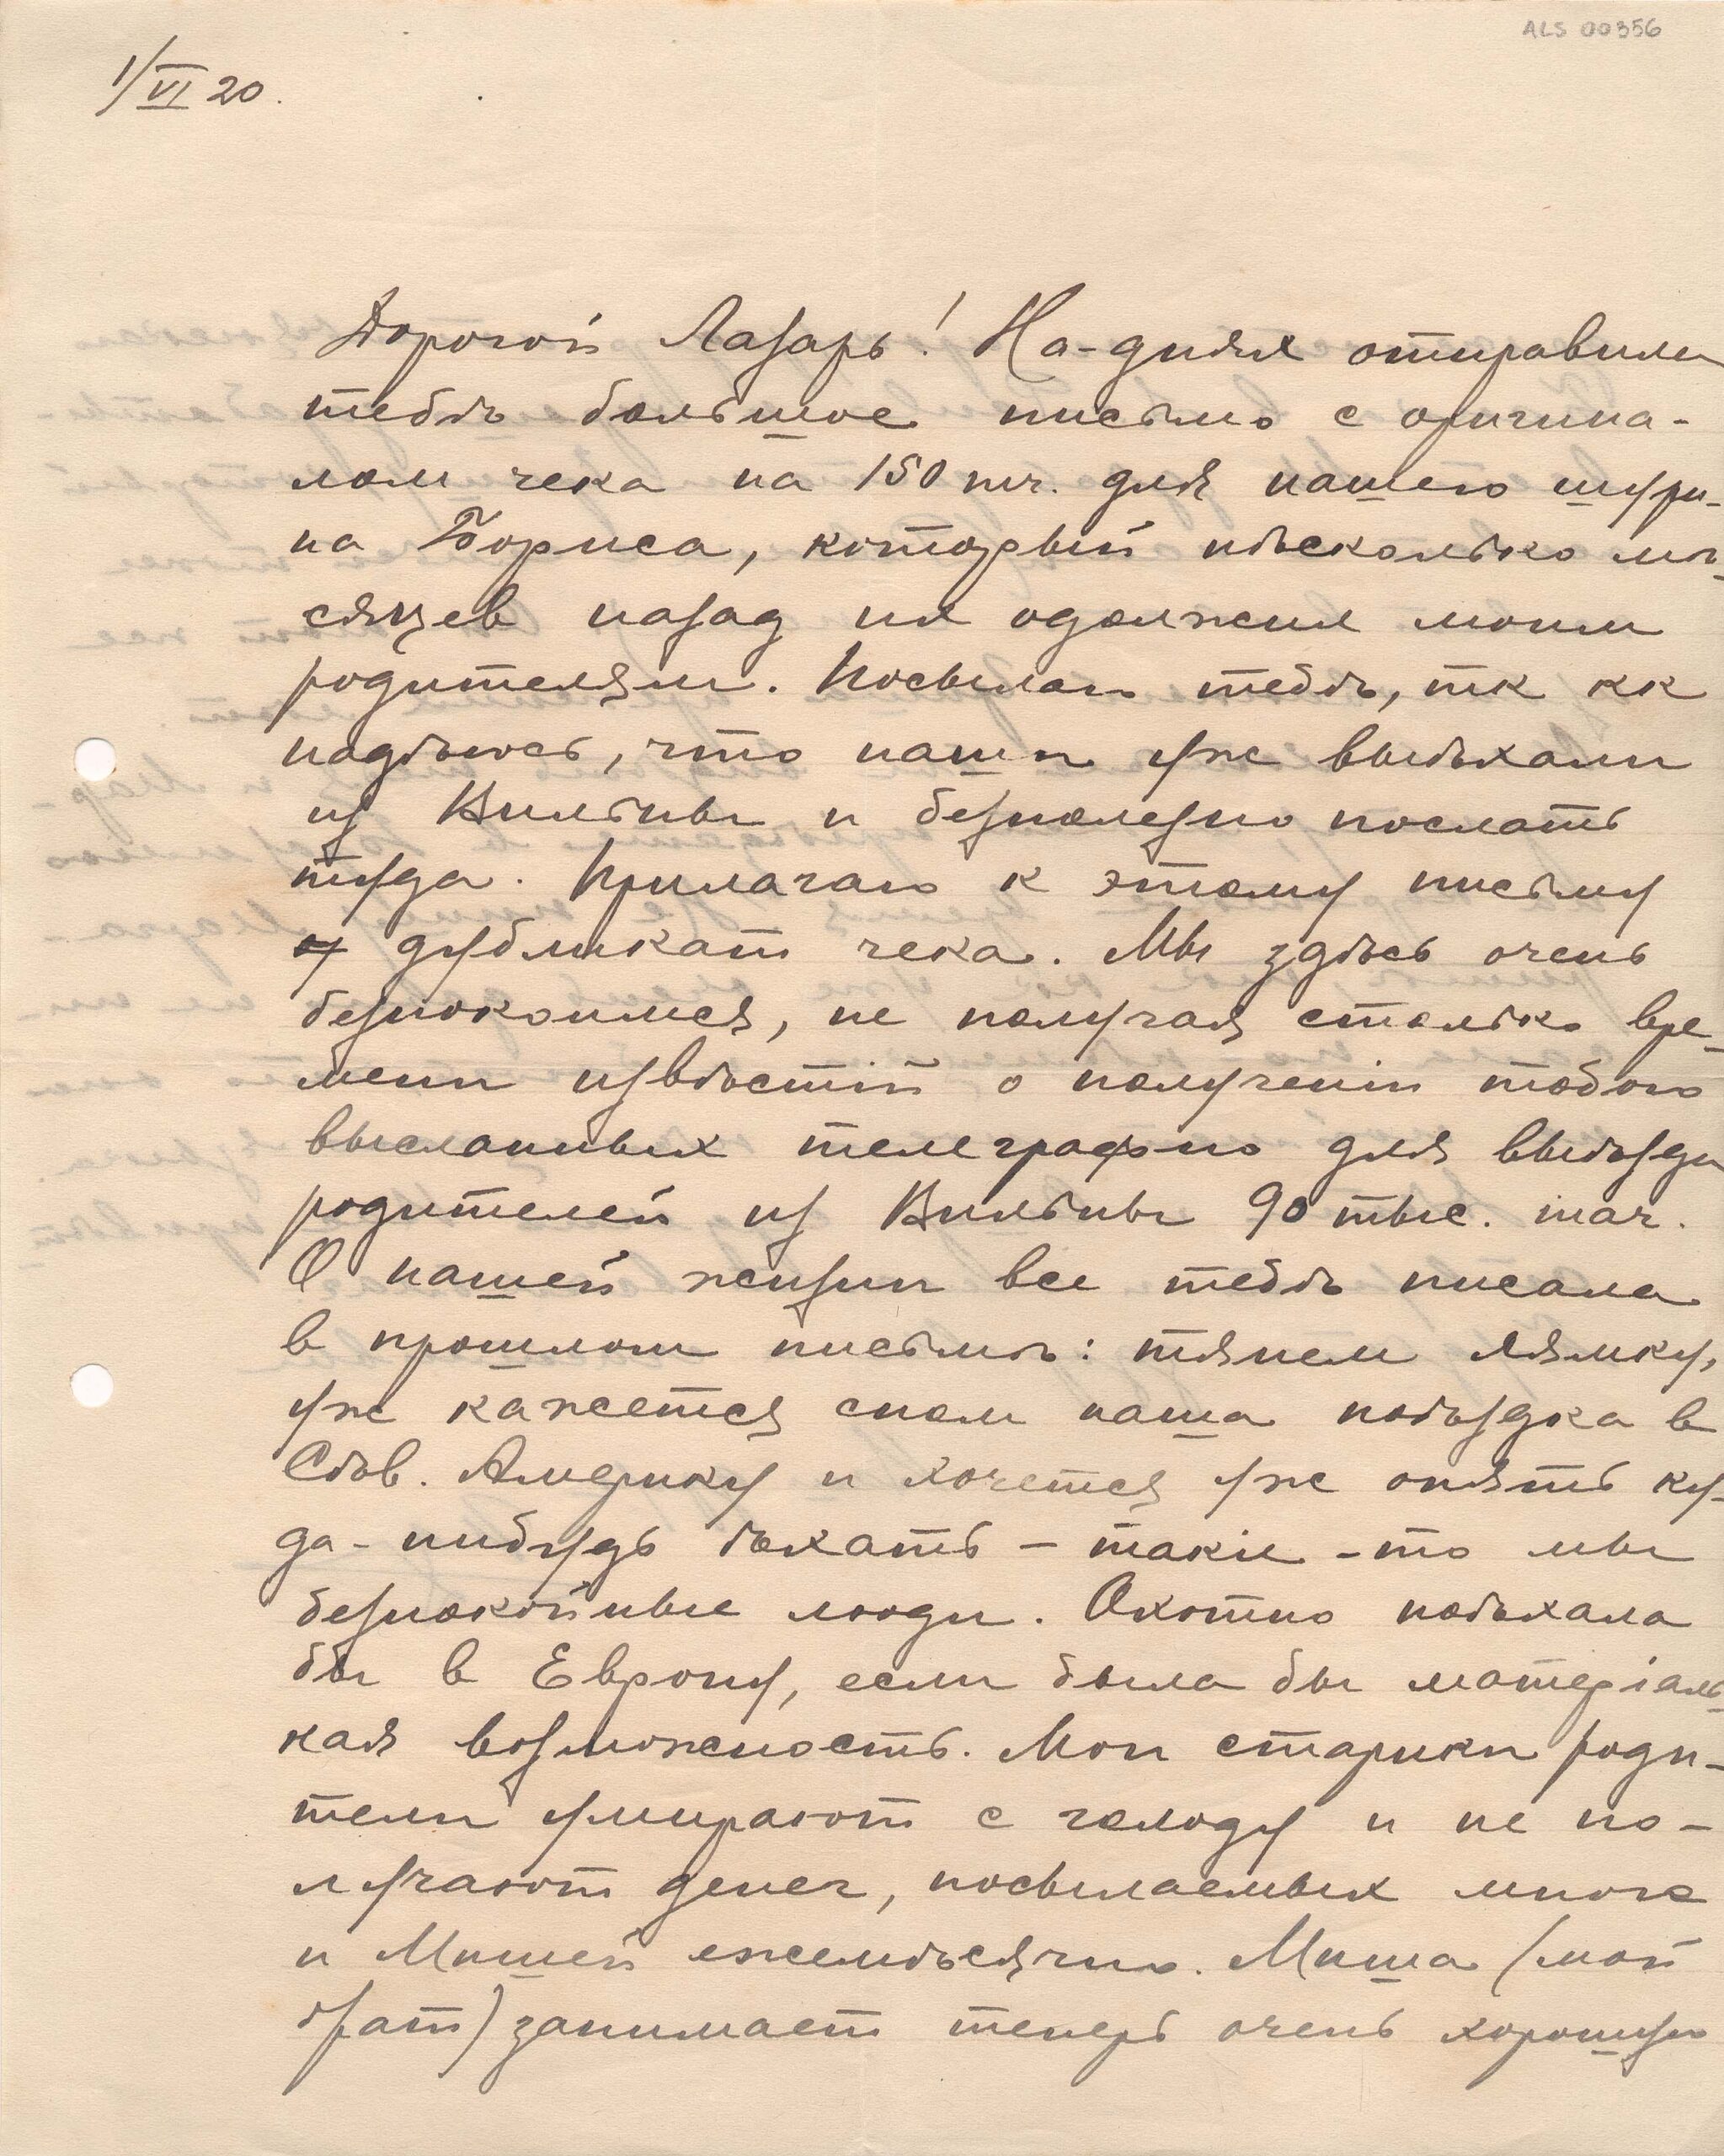 ALS 00356
1/VI 20.
Дорогой Лазарь! На-днях отправила
тебѣ большое письмо с оригина-
лом чека на 150 т.г. для нашего шури-
на Бориса, который нѣсколько мѣ-
сяцев назад их одолжил моим
родителям. Посылаю тебѣ, тк кк
надѣюсь, что наши уже выѣхали
из Вильны и безполезно послать
туда. Прилагаю к этому письму
дубликат чека. Мы здѣсь очень
безпокоимся, не получая столько вре-
мени извѣстій о полученіи тобою
высланных телеграфно для выѣзда
родителей из Вильны 90 тыс. mar.
О нашей жизни все тебѣ писала
в прошлом письмѣ: тянем лямку,
уже кажется сном наша поѣздка в
Сѣв. Америку и хочется уже опять ку-
да-нибудь ѣхать – такіе-то мы
безпокойные люди. Охотно поѣхала
бы в Европу, если была бы матеріаль-
ная возможность. Мои старики роди-
тели умирают с голоду и не по-
лучают денег, посылаемых мною
и Мишей ежемѣсячно. Миша (мой
брат) занимает теперь очень хорошую